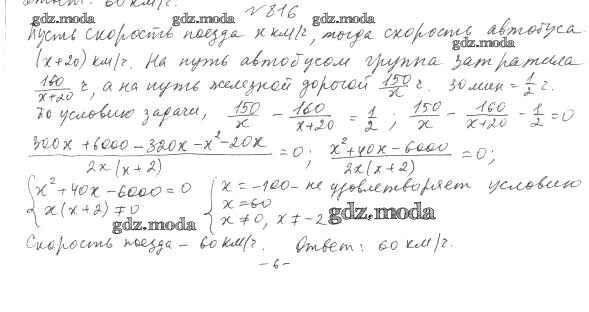 Ответ: 60 км/г.
№ 816
gdz.moda gdz.moda gdz.moda
Пусть скорость поезда x км/г, тогда скорость автобуса
(x+20) км/г. На путь автобусом группа затратила
160/(x+20) г, а на путь железной дорогой 150/x г. 30 мин = 1/2 г.
gdz.moda gdz.moda gdz.moda
По условию задачи, 150/x - 160/(x+20) = 1/2; 150/x - 160/(x+20) - 1/2 = 0
(300x + 6000 - 320x - x² - 20x)/(2x(x+2)) = 0; (x² + 40x - 6000)/(2x(x+2)) = 0;
{x² + 40x - 6000 = 0 {x = -100 - не удовлетворяет условию
x(x+2) ≠ 0 x = 60
x ≠ 0, x ≠ -2
gdz.moda gdz.moda
Скорость поезда - 60 км/г. Ответ: 60 км/г.
- 6 -